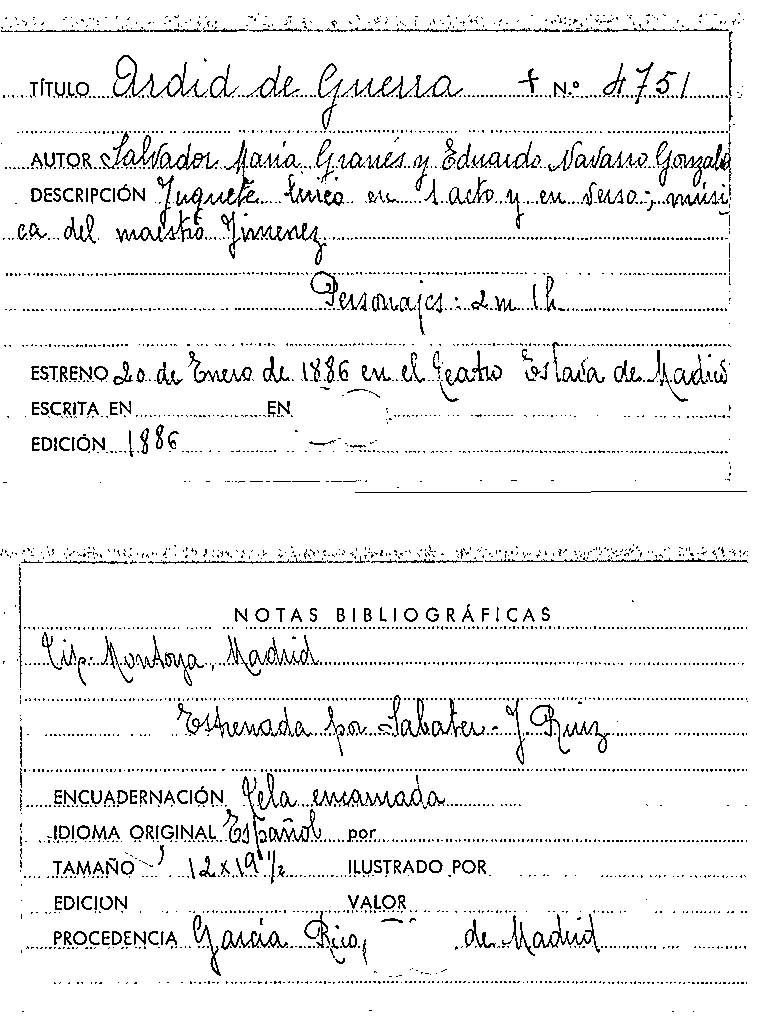 TÍTULO Ardid de Guerra + N.º 4751
AUTOR Salvador María Granés y Eduardo Navarro Gonzalo
DESCRIPCIÓN Juguete lírico en 1 acto y en verso; músi
ca del maestro Jimenez
Personajes: 2 m 1 h.
ESTRENO 20 de Enero de 1886 en el Teatro Eslava de Madrid
ESCRITA EN EN
EDICIÓN 1886
NOTAS BIBLIOGRÁFICAS
Tip. Montoya, Madrid
Estrenada por Sabater - J. Ruiz
ENCUADERNACIÓN Tela encarnada
IDIOMA ORIGINAL Español por
TAMAÑO 12 x 19 1/2 ILUSTRADO POR
EDICION VALOR
PROCEDENCIA García Rico, de Madrid